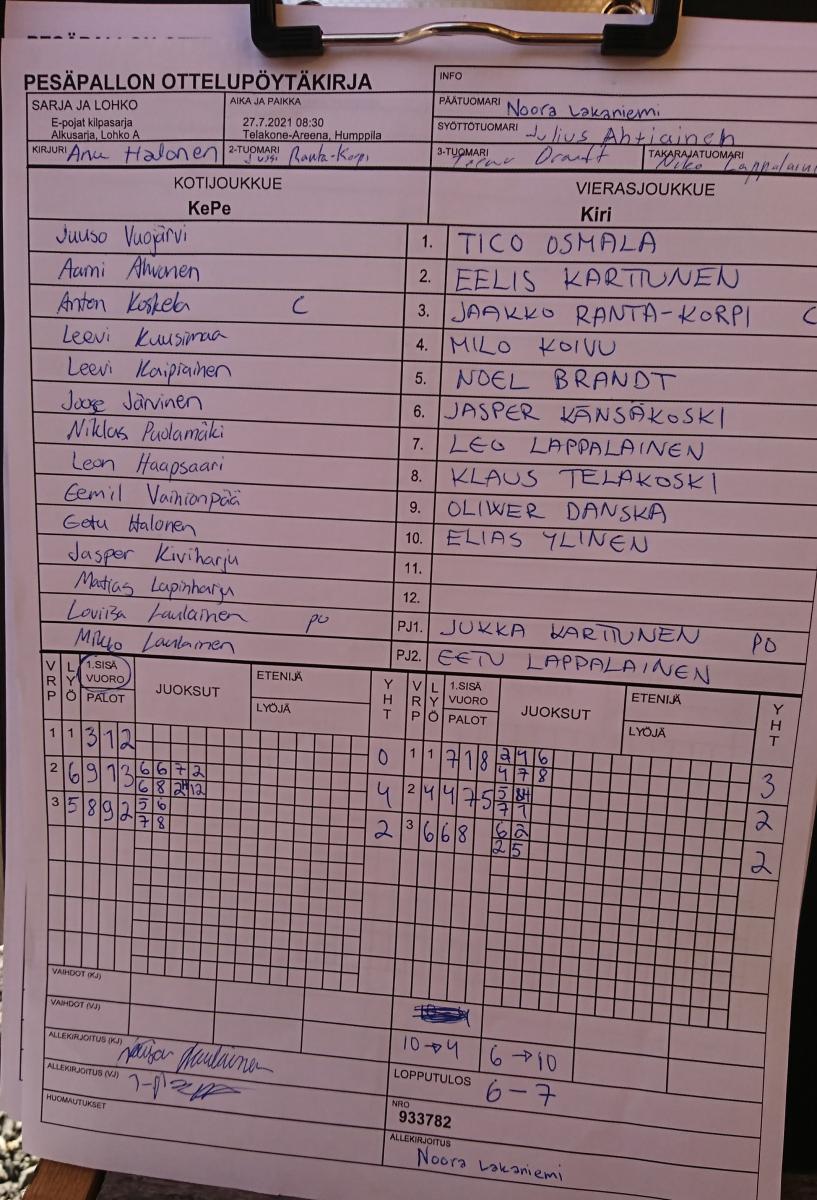 PESÄPALLON OTTELUPÖYTÄKIRJA
INFO
SARJA JA LOHKO
E-pojat kilpasarja
Alkusarja, Lohko A
AIKA JA PAIKKA
27.7.2021 08:30
Telakone-Areena, Humppila
PÄÄTUOMARI Noora Lakaniemi
SYÖTTÖTUOMARI Julius Ahtiainen
KIRJURI Anu Halonen
2-TUOMARI Jussi Ranta-Korpi
3-TUOMARI
TAKARAJATUOMARI Niko Lappalainen
KOTIJOUKKUE
KePe
VIERASJOUKKUE
Kiri
Juuso Vuojärvi 1. TICO OSMALA
Aarni Ahvonen 2. EELIS KARTTUNEN
Anton Koskela C 3. JAAKKO RANTA-KORPI C
Leevi Kuusimaa 4. MILO KOIVU
Leevi Kaipiainen 5. NOEL BRANDT
Joose Järvinen 6. JASPER KÄNSÄKOSKI
Niklas Puolamäki 7. LEO LAPPALAINEN
Leon Haapsaari 8. KLAUS TELAKOSKI
Eemil Vainionpää 9. OLIWER DANSKA
Eetu Halonen 10. ELIAS YLINEN
Jasper Kiviharju 11.
Matias Lapinharju 12.
Loviisa Laulainen PO PJ1. JUKKA KARTTUNEN PO
Mikko Laulainen PJ2. EETU LAPPALAINEN
VRP LYÖ 1.SISÄ VUORO PALOT JUOKSUT ETENIJÄ LYÖJÄ YHT VRP LYÖ 1.SISÄ VUORO PALOT JUOKSUT ETENIJÄ LYÖJÄ YHT
1 1 3 1 2 0 1 1 7 1 8 2 4 6 3
4 7 8
2 6 9 1 3 6 6 7 2 4 2 4 4 7 5 5 2
6 8 12 7 1
3 5 8 9 2 5 6 2 3 6 6 8 6 2 2
7 8 2 5
VAIHDOT (KJ)
VAIHDOT (VJ)
10→4 6→10
ALLEKIRJOITUS (KJ)
ALLEKIRJOITUS (VJ)
LOPPUTULOS 6-7
HUOMAUTUKSET
NRO
933782
ALLEKIRJOITUS
Noora Lakaniemi